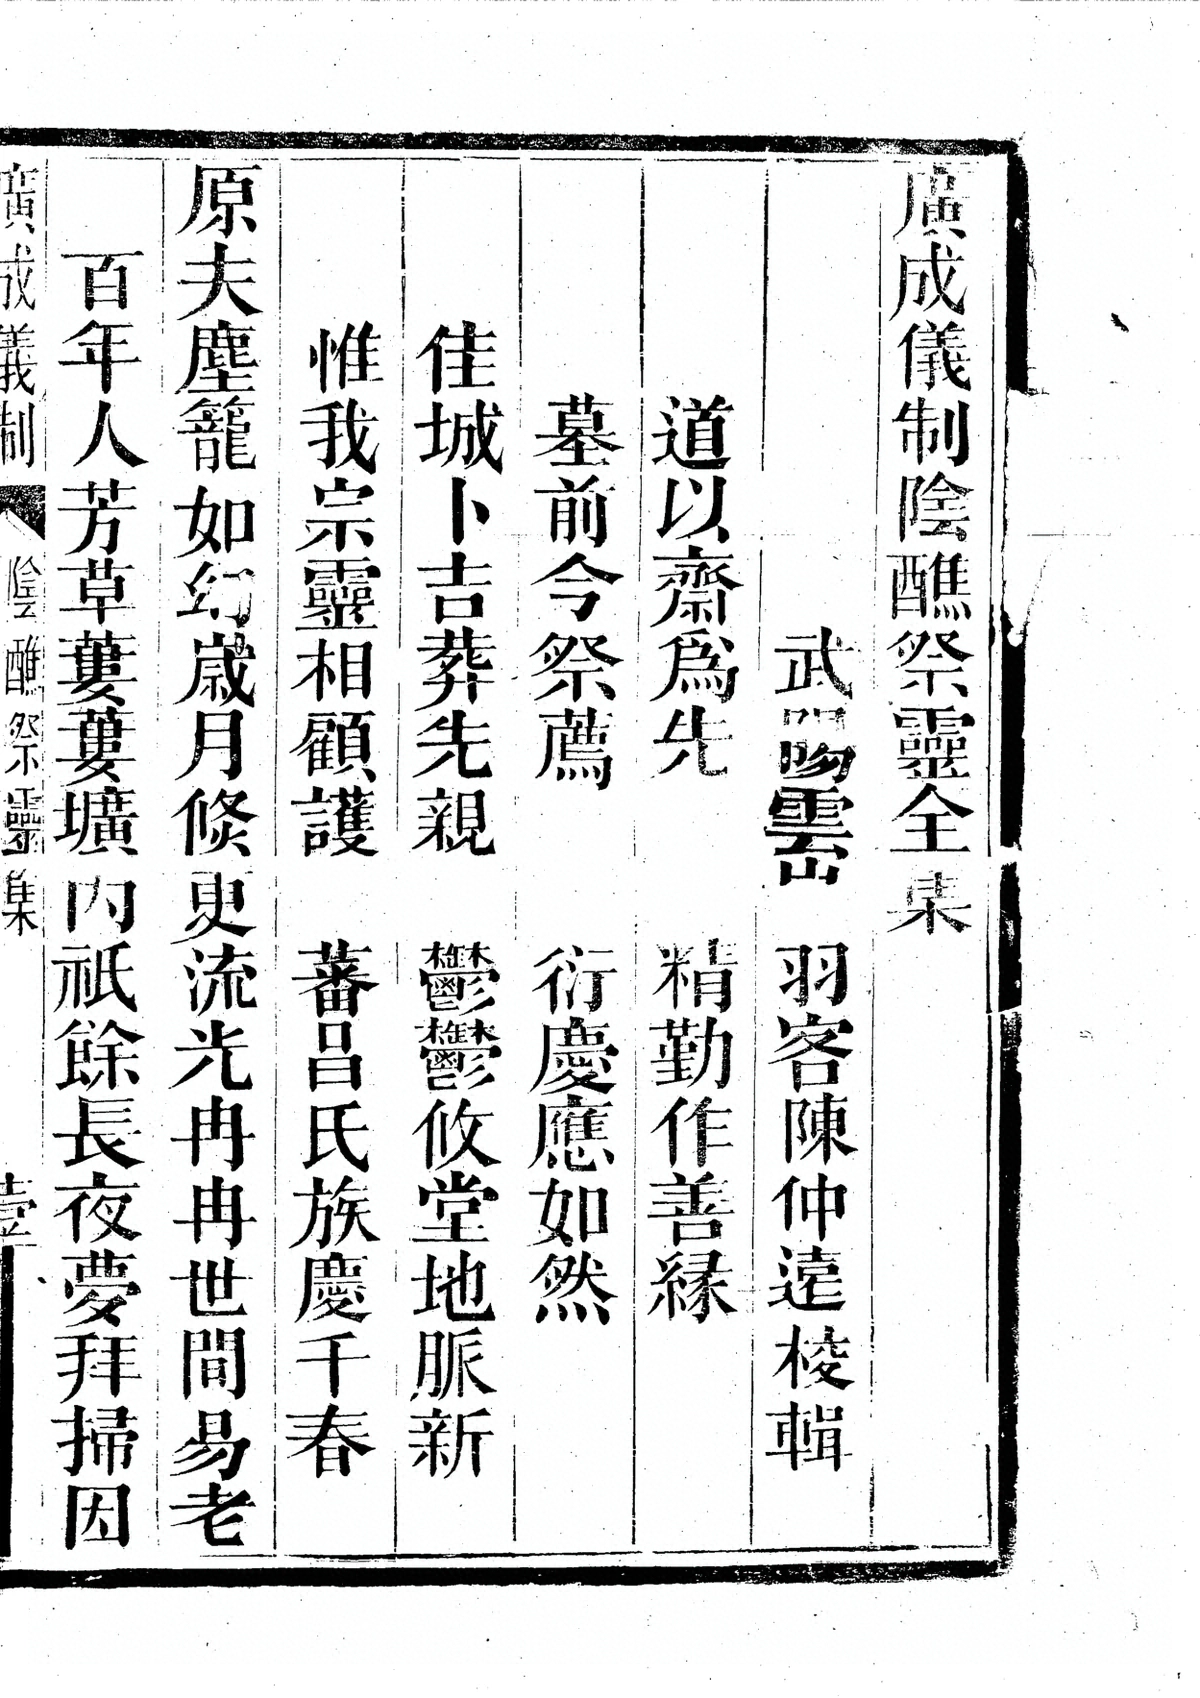 廣成儀制陰醮祭靈全集
武陽雲峃 羽客陳仲遠校輯
道以齋爲先 精勤作善緣
墓前今祭薦 衍慶應如然
佳城卜吉葬先親 鬱鬱攸堂地脈新
惟我宗靈相顧護 蕃昌氏族慶千春
原夫塵籠如幻歲月倏更流光冉冉世間易老
百年人芳草萋萋壙內祇餘長夜夢拜掃因
廣成儀制 陰醮祭靈集 壹